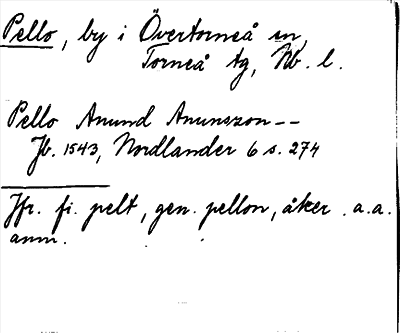 Pello, by i Övertorneå sn,
Torneå tg, Nb. l.
Pello Anund Anunszon--
Jb. 1543, Nordlander 6 s. 274
Jfr. fi. pelt, gen. pellon, åker. a.a.
anm.